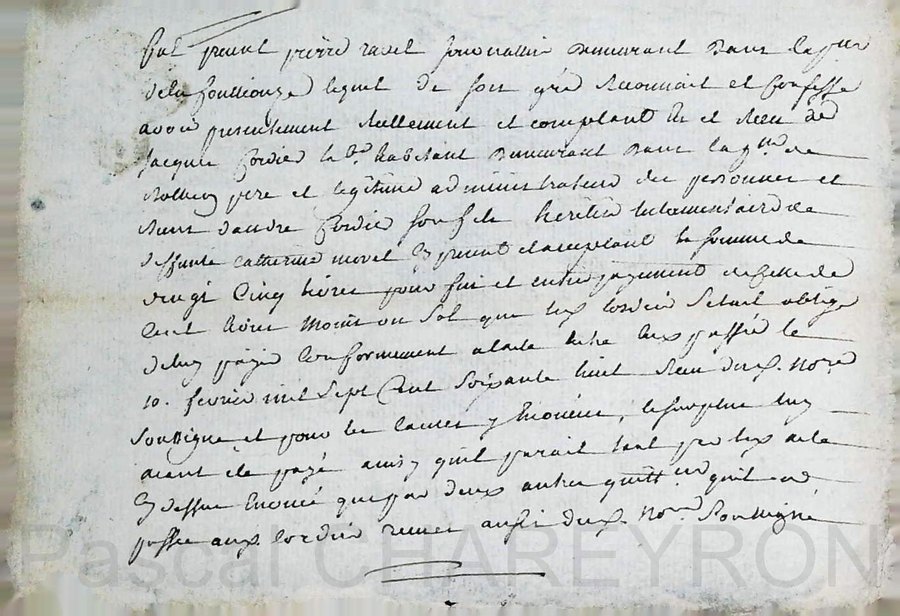 fut present pierre ravel journallier demeurant dans la psse
de la fouillouze lequel de son gré reconnait et confesse
avoir presentement reellement et comptant eu et receu de
jacques cordier habitant demeurant dans la
pere et legitime administrateur des personnes et
biens d'andré cordier son fils heritier testamentaire de
deffunte catherine morel cy present et acceptant la somme de
vingt cinq livres pour fin et entier payement de celle de
cent livres moins un sol que led cordier setait obligé
de luy payer conformement a l'acte entre eux passé le
10. fevrier mil sept cent soixante huit receu dud. nore
soussigné et pour les causes y enoncées, le surplus luy
aiant été payé ainsy qu'il parait tant par led acte
cy dessus enoncé que par deux autres quittces qu'il a
passée aud. cordier receues aussi dud. nore soussigné
Pascal CHAREYRON